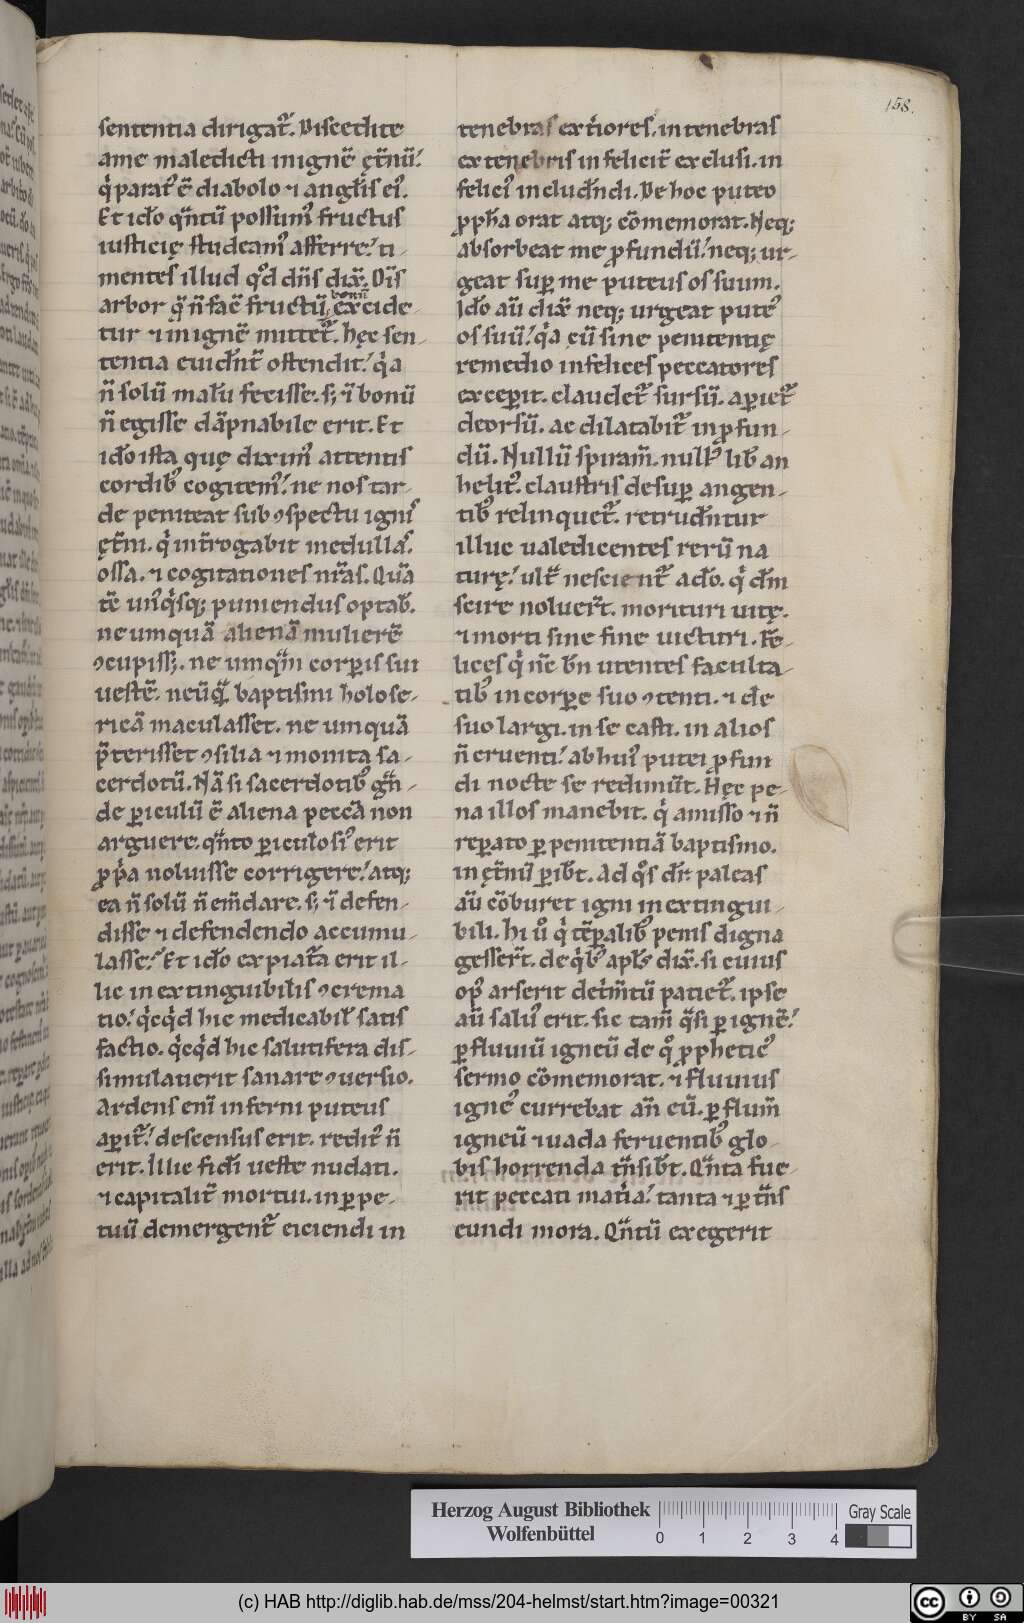 158.
sententia dirigat᷑. Discedite
ame maledicti inignē ęt̄nū.'
q̇ parat᷒ ē diabolo ⁊ angl̄is ei᷒.
Et idō qn̄tū possum᷒ fructus
iusticię studeam᷒ afferre.' ti-
mentes illud qd̄ dn̄s dix̄. Oī̄s
arbor q̄ n̄ facē fructū bonū excide-
tur ⁊ in ignē mittet᷑. hęc sen-
tentia euidn̄t̄ ostendit.' q̇a
n̄ solū malū fecisse. s; ⁊̄ bonū
n̄ egisse dāpnabile erit. Et
idō ista quę dixim᷒ attentis
cordib᷒ cogitem᷒.' ne nos tar-
de peniteat sub ꝯspectu igni᷒
ęt̄ni. q̇ int̄rogabit medullas.
ossa. ⁊ cogitationes nr̄as. Quā
tē un᷒q̇sq; puniendus optab̄.
ne umquā alienā mulierē
ꝯcupiss;. ne umqm̄ corꝑis sui
uestē. neūq̄ baptismi holose-
ricā maculasset. ne umquā
p̄terisset ꝯsilia ⁊ monita sa-
cerdotū. Nā si sacerdotib᷒ gn̄-
de ꝑiculū ē aliena peccā non
arguere. qn̄to ꝑiculosi᷒ erit
ꝓṗa noluisse corrigere.' atq;
ea n̄ solū n̄ em̄dare. s; ⁊̄ defen-
disse ⁊ defendendo accumu-
lasse.' Et idō expiat̄a erit il-
lic inextinguibilis ꝯcrema
tio.' q̇cq̇d hic medicabil̄ satis
factio. q̇cq̇d hic salutifera dis-
simulauerit sanare ꝯuersio.
Ardens enī inferni puteus
aꝑit᷑.' descensus erit. redit᷒ n̄
erit. Illic fidī ueste nudati.
⁊ capitalit̄ mortui. inꝑpe-
tuū demergent᷑ eiciendi in
tenebras ext̄iores. in tenebras
ex tenebris infelicit̄ exclusi. in
felici᷒ includn̄di. De hoc puteo
ꝓph̄a orat atq; cōmemorat. Neq;
absorbeat me ꝓfundū.' neq; ur-
geat suꝑ me puteus os suum.
Idō aū dix̄ neq; urgeat pute᷒
os suū.' q̇a cū sine penitentię
remedio infelices peccatores
exceꝑit. claudet᷑ sursū. aꝑiet᷑
deorsū. ac dilatabit᷑ inꝓfun-
dū. Nullū spiram̄. null᷒ lib̄ an
helit᷒. claustris desuꝑ angen-
tib᷒ relinquet᷑. retrudn̄tur
illuc ualedicentes rerū na
turę.' ult̄ nescient᷑ a dō. q̇ dm̄
scire noluer̄t. morituri uitę.
⁊ morti sine fine uicturi. Fe-
lices q̇ nc̄ bn̄ utentes faculta-
tib᷒ incorꝑe suo ꝯtenti. ⁊ de
suo largi. in se casti. in alios
n̄ cruenti.' ab hui᷒ putei ꝓfun
di nocte se redimūt. Hęc pe-
na illos manebit. q̇ amisso ⁊ n̄
reꝑato ꝑ penitentiā baptismo.
in ęt̄nū ꝑib̄t. Ad qo̊s dr̄. paleas
aū cōburet igni inextingui-
bili. hi uº q̇ tēꝑalib᷒ penis digna
gesser̄t. de q̇b᷒ apl̄s dix̄. si cuius
op᷒ arserit det̄im̄tū patiet᷑. ipse
aū salu᷒ erit. sic tam̄ q̄si ꝑ ignē.'
ꝑ fluuiū igneū de qº ꝓphetic᷒
sermo cōmemorat. ⁊ fluuius
igne᷒ currebat an̄ eū. ꝑ flum̄
igneū ⁊ uada feruentib᷒ glo-
bis horrenda tn̄sib̄t. Qn̄ta fue-
rit peccati mat̄ia.' tanta ⁊ ꝑtn̄s
eundi mora. Qn̄tū exegerit
Herzog August Bibliothek
Wolfenbüttel
0 1 2 3 4
Gray Scale
(c) HAB http://diglib.hab.de/mss/204-helmst/start.htm?image=00321
cc BY SA